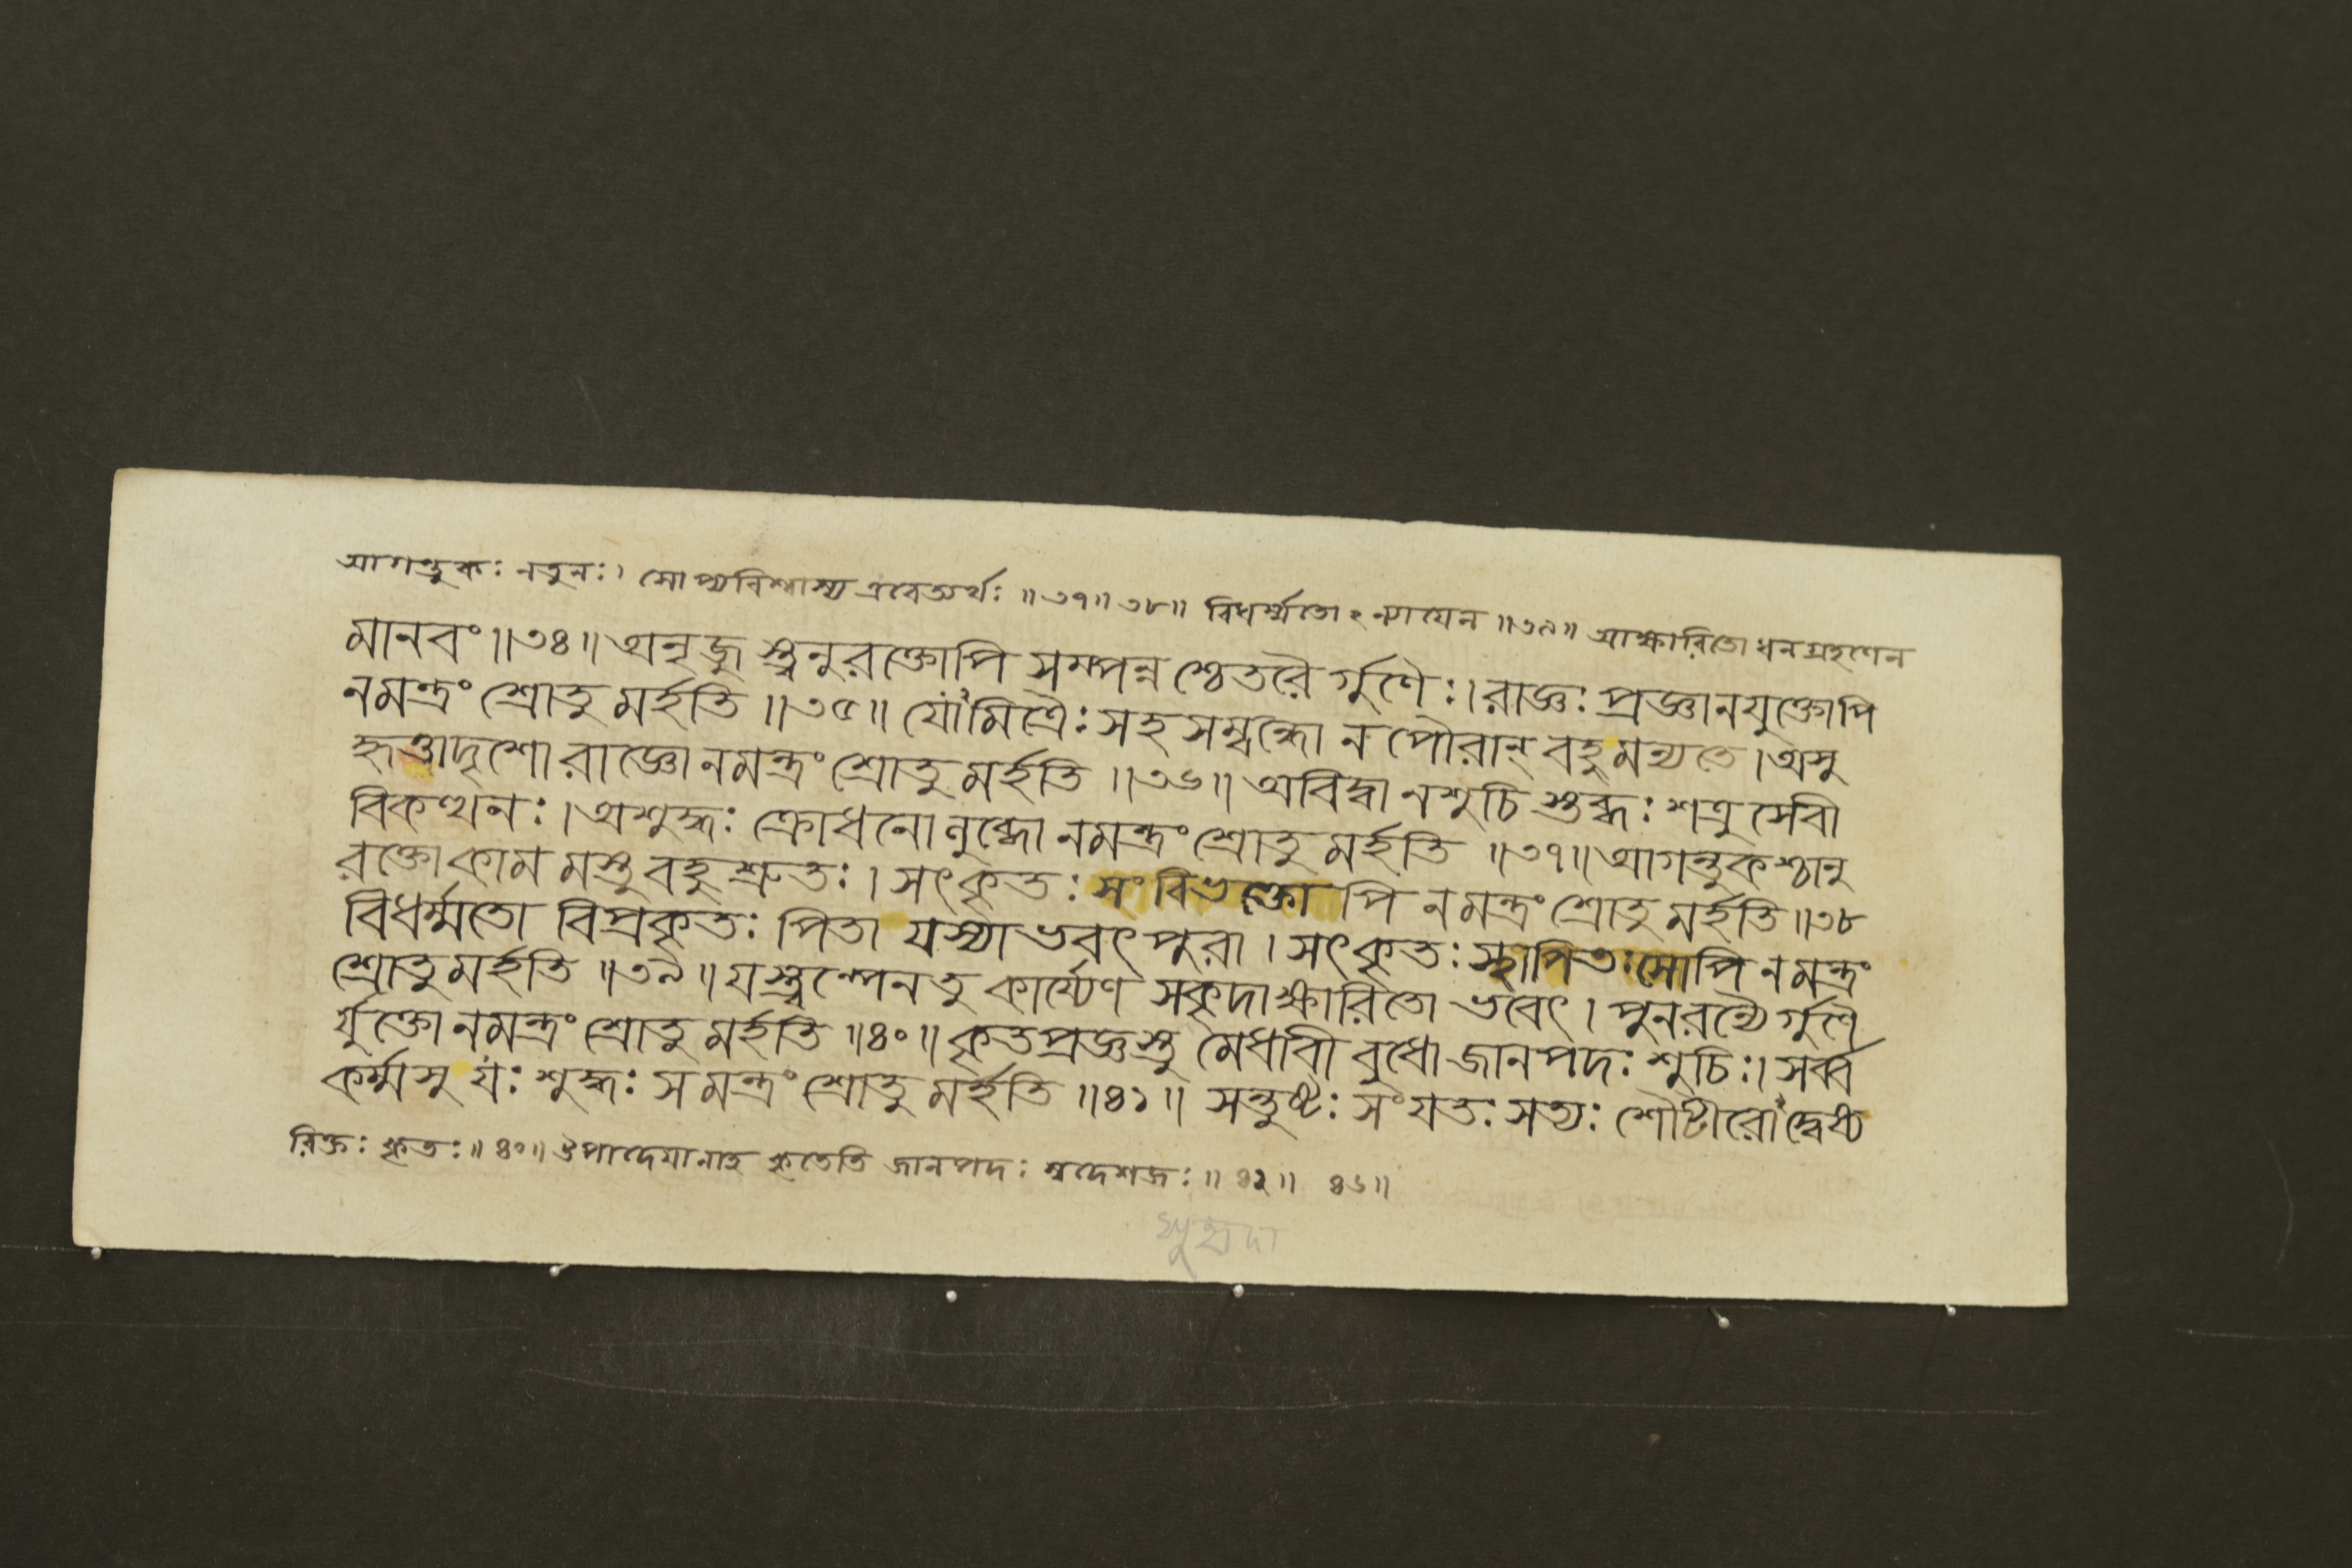 আগন্তুকঃ নতুনঃ। সোপ্যবিশ্বাস্য এবেত্যর্থঃ ॥৩৭॥৩৮॥ বিধর্ম্মতোঽন্যাযেন ॥৩৯॥ আক্ষারিতো ধনগ্রহণেন
মানবং ॥৩৪॥ অনৃজু স্ত্বনুরক্তোপি সম্পন্ন শ্চেতরৈ র্গুণৈঃ। রাজ্ঞঃ প্রজ্ঞানযুক্তোপি
নমন্ত্রং শ্রোতু মর্হতি ॥৩৫॥ যোঽমিত্রৈঃ সহ সম্বদ্ধো ন পৌরান্ বহু মন্যতে। অসু
হৃত্তাদৃশো রাজ্ঞো নমন্ত্রং শ্রোতু মর্হতি ॥৩৬॥ অবিদ্বা নশুচি স্তব্ধঃ শত্রু সেবী
বিকত্থনঃ। অশুহৃঃ ক্রোধনো লুব্ধো নমন্ত্রং শ্রোতু মর্হতি ॥৩৭॥ আগন্তুকশ্চানু
রক্তো কাম মস্তু বহু শ্রুতঃ। সৎকৃতঃ সংবিভক্তো পি নমন্ত্রং শ্রোতু মর্হতি ॥৩৮
বিধর্ম্মতো বিপ্রকৃতঃ পিতা যস্যাভবৎ পুরা। সৎকৃতঃ স্থাপিতঃ সোপি নমন্ত্রং
শ্রোতুমর্হতি ॥৩৯॥ যস্ত্বল্পেনতু কার্য্যেণ সকৃদাক্ষারিতো ভবেৎ। পুনরন্যৈ র্গুণৈ
র্যুক্তো নমন্ত্রং শ্রোতু মর্হতি ॥৪০॥ কৃতপ্রজ্ঞস্তু মেধাবী বুধো জানপদঃ শুচিঃ। সর্ব্ব
কর্ম্মসু যঃ শুহৃঃ স মন্ত্রং শ্রোতু মর্হতি ॥৪১॥ সন্তুষ্টঃ সংযতঃ সত্যঃ শৌটীরো দ্বেষ্য
রিক্তঃ কৃতঃ ॥৪০॥ উপাদেযানাহ কৃতেতি জানপদঃ স্বদেশজঃ ॥৪১॥ ৪৬॥